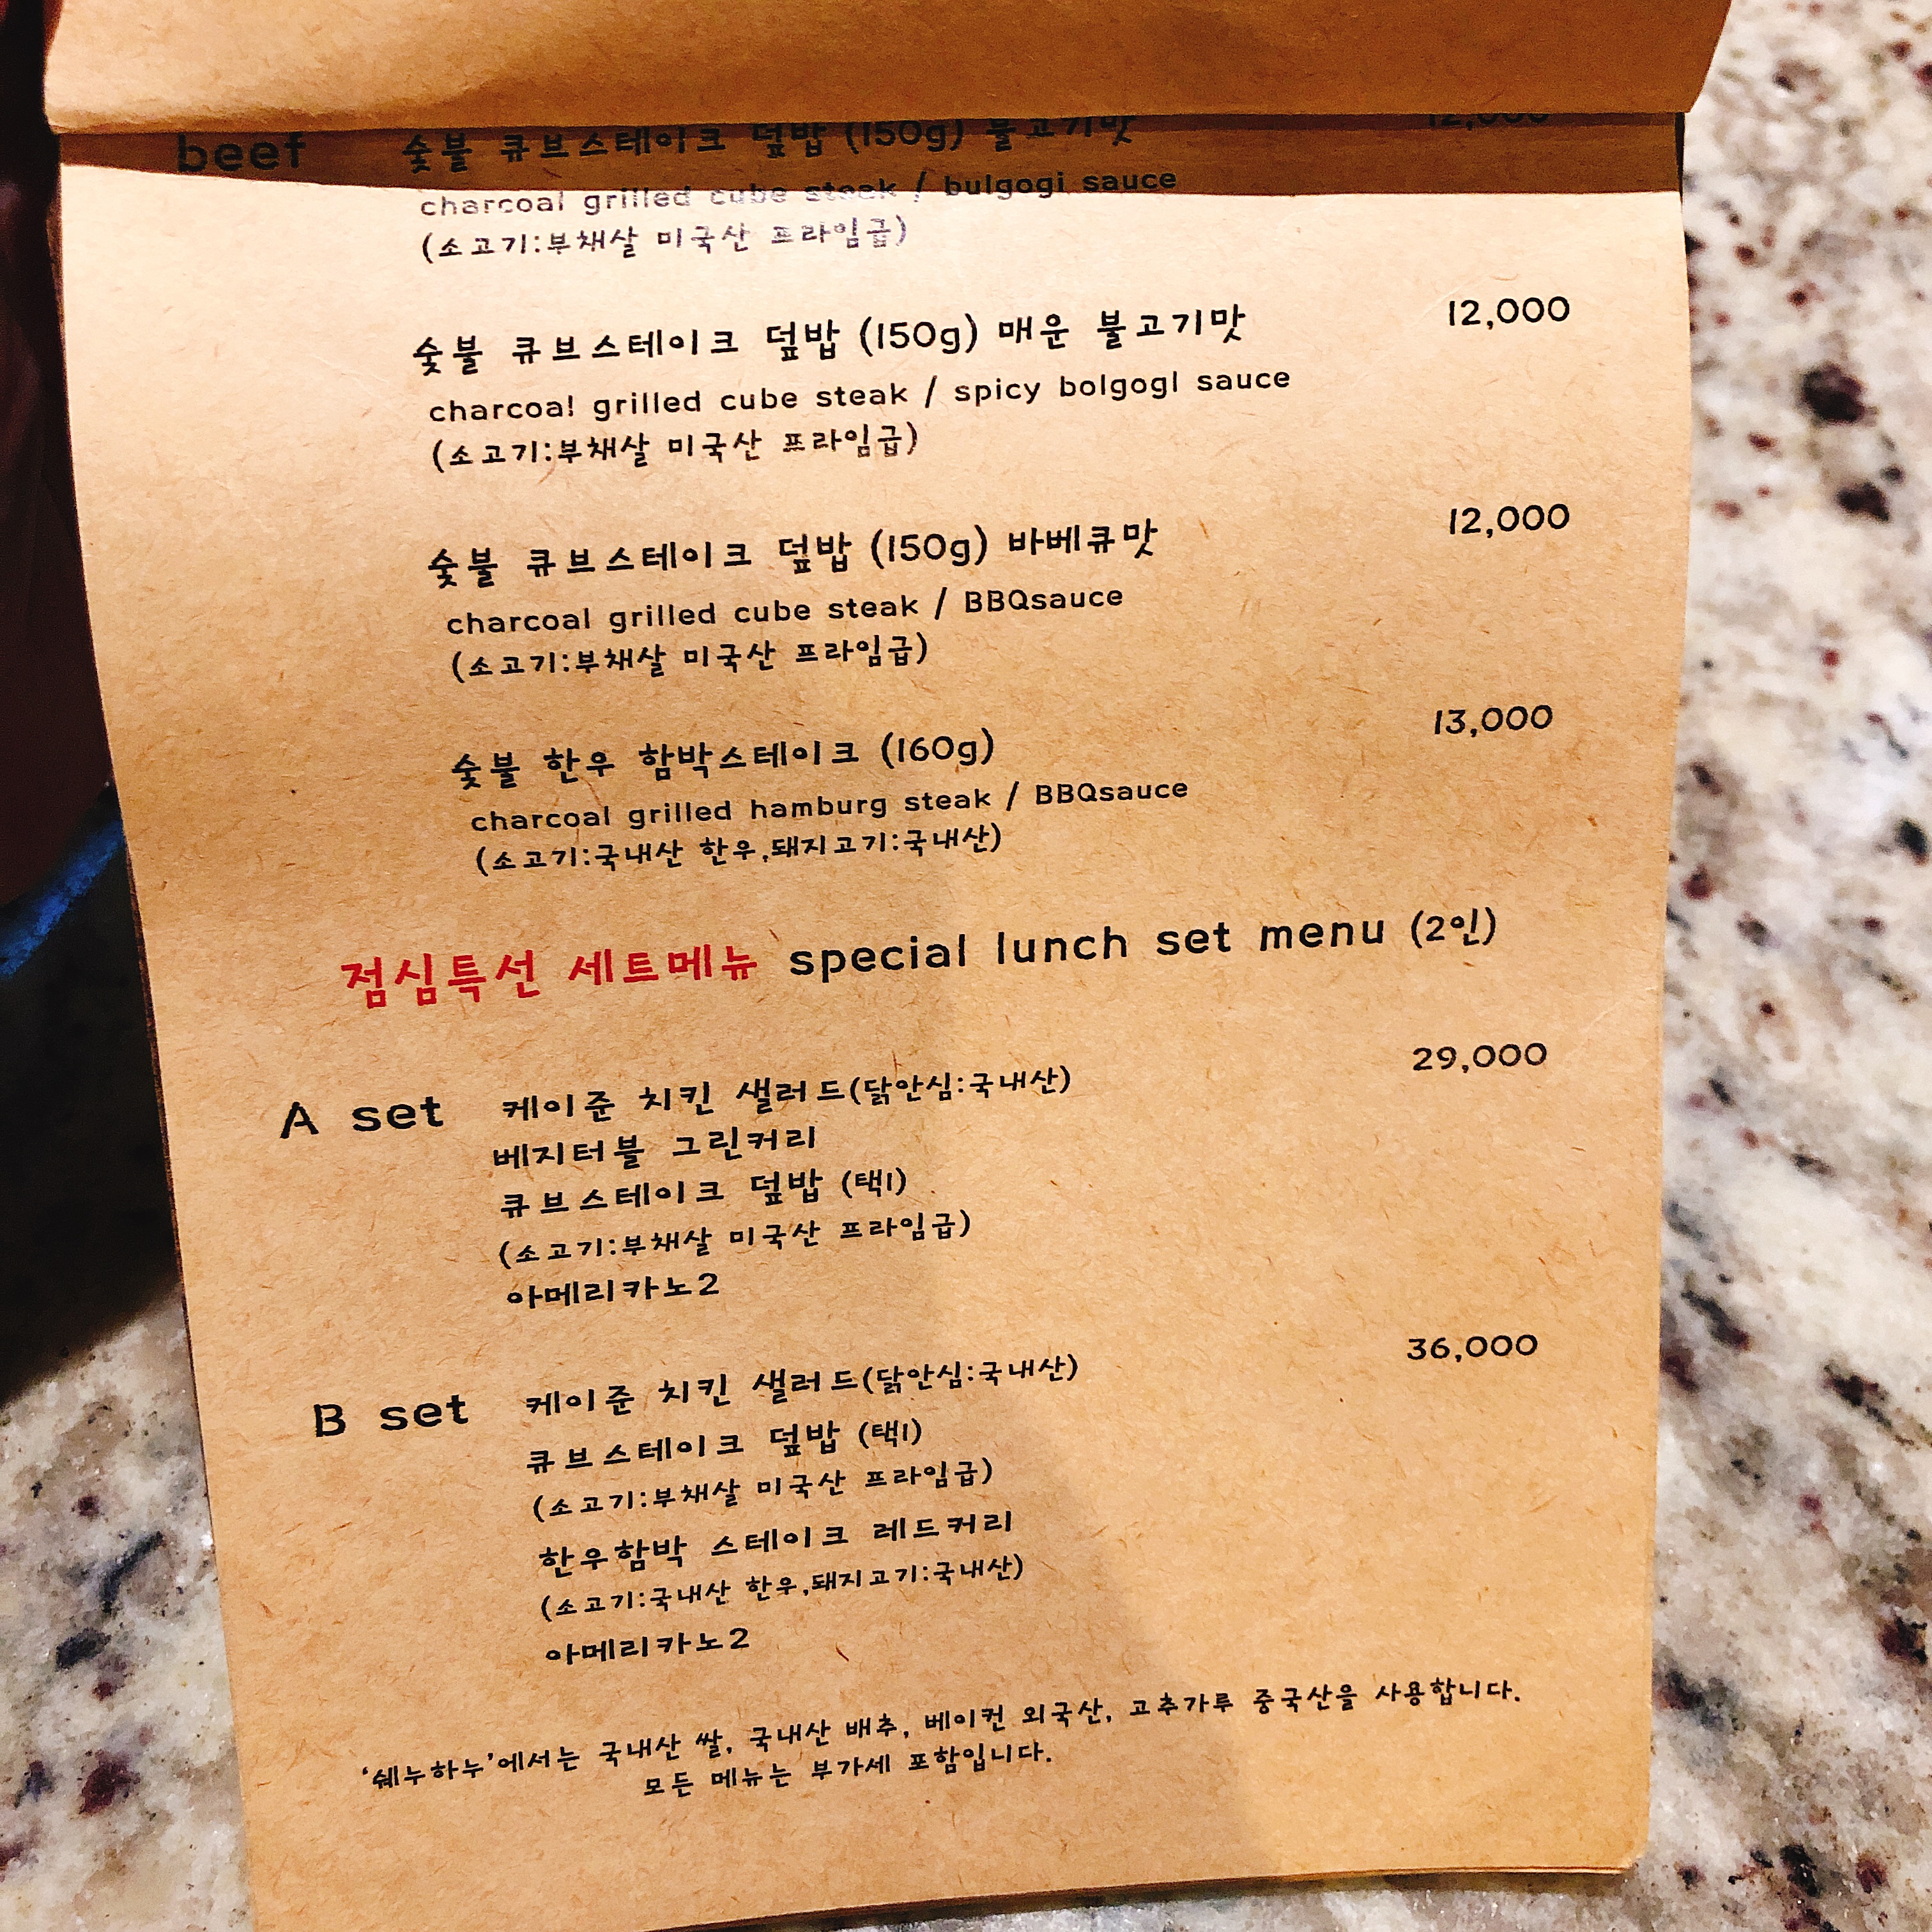 beef 숯불 큐브스테이크 덮밥 (150g) 불고기맛 12,000
charcoal grilled cube steak / bulgogi sauce
(소고기:부채살 미국산 프라임급)
숯불 큐브스테이크 덮밥 (150g) 매운 불고기맛 12,000
charcoal grilled cube steak / spicy bolgogl sauce
(소고기:부채살 미국산 프라임급)
숯불 큐브스테이크 덮밥 (150g) 바베큐맛 12,000
charcoal grilled cube steak / BBQsauce
(소고기:부채살 미국산 프라임급)
숯불 한우 함박스테이크 (160g) 13,000
charcoal grilled hamburg steak / BBQsauce
(소고기:국내산 한우,돼지고기:국내산)
점심특선 세트메뉴 special lunch set menu (2인)
A set 케이준 치킨 샐러드(닭안심:국내산) 29,000
베지터블 그린커리
큐브스테이크 덮밥 (택1)
(소고기:부채살 미국산 프라임급)
아메리카노2
B set 케이준 치킨 샐러드(닭안심:국내산) 36,000
큐브스테이크 덮밥 (택1)
(소고기:부채살 미국산 프라임급)
한우함박 스테이크 레드커리
(소고기:국내산 한우,돼지고기:국내산)
아메리카노2
'쉐누하누'에서는 국내산 쌀, 국내산 배추, 베이컨 외국산, 고추가루 중국산을 사용합니다.
모든 메뉴는 부가세 포함입니다.